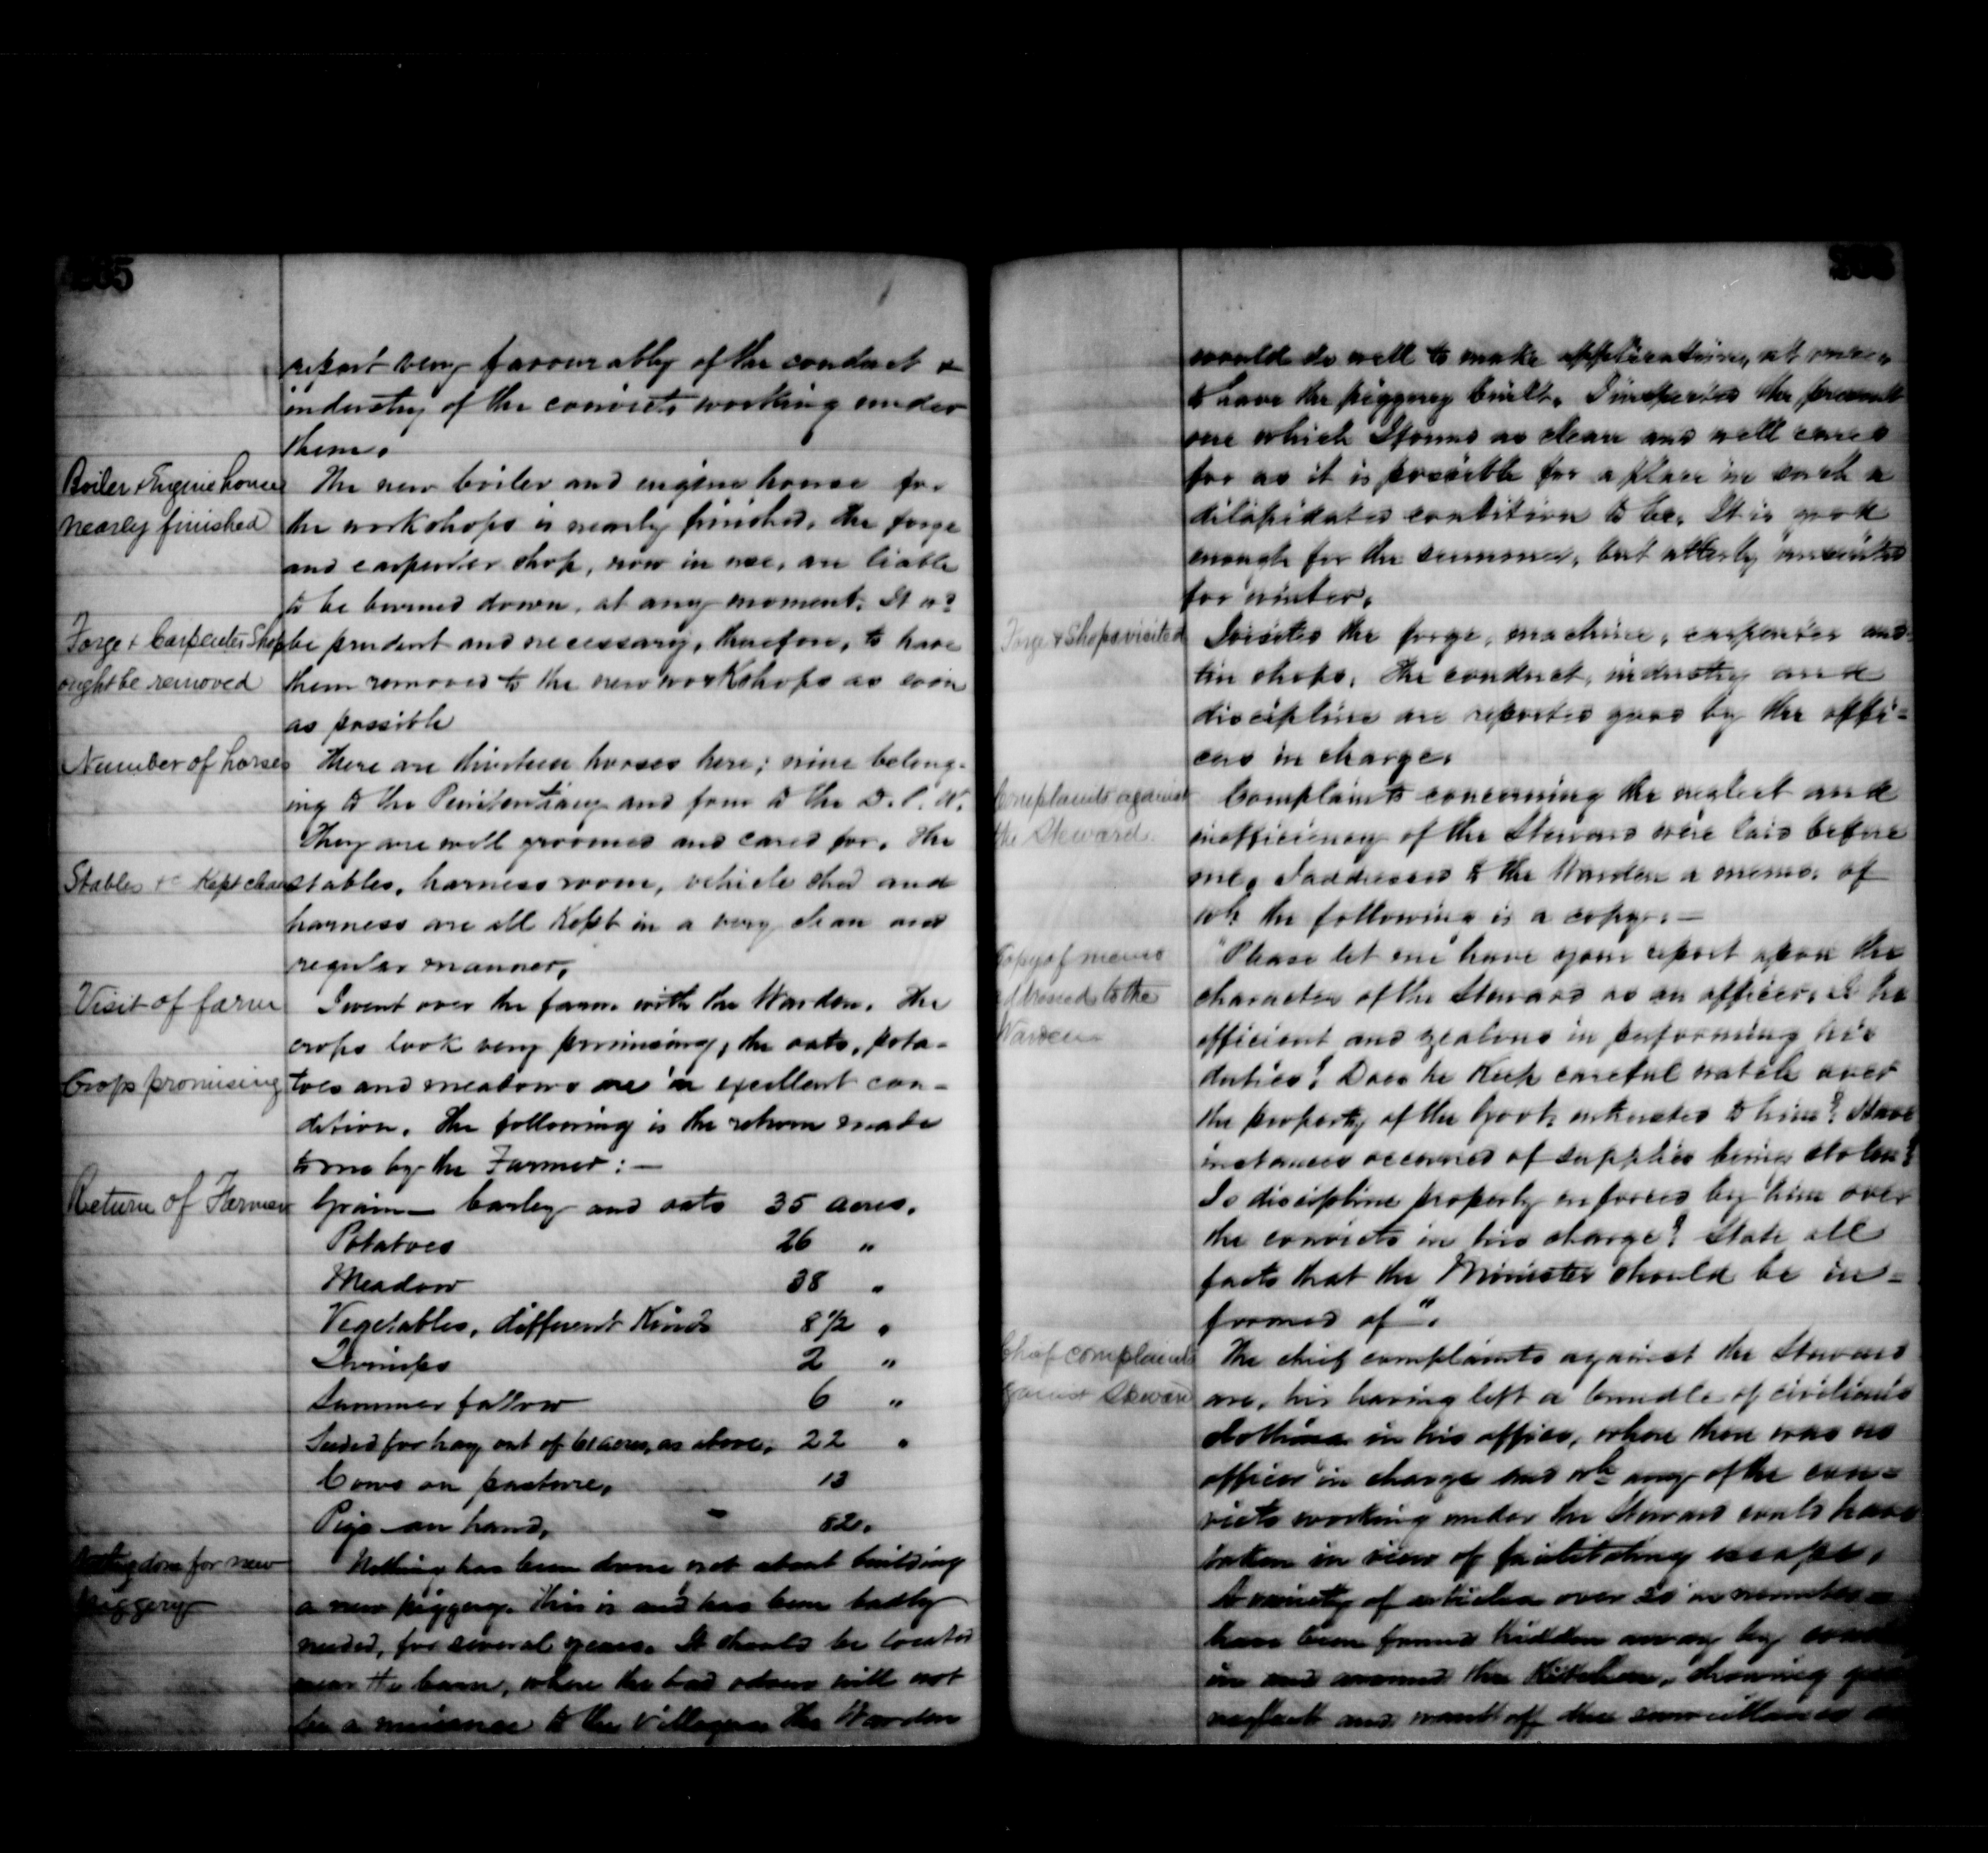 report very favourably of the conduct &
industry of the convicts working under
them.
Boiler & Engine house
nearly finished
The new boiler and engine house for
the workshops is nearly finished, the forge
and carpenter shop, now in use, are liable
to be burned down, at any moment. It wd
Forge & Carpenter Shop
ought be removed
be prudent and necessary, therefore, to have
them removed to the new workshops as soon
as possible
Number of horses
There are thirteen horses here; nine belong-
ing to the Penitentiary and four to the D. P. W.
They are well groomed and cared for. The
Stables &c Kept clean
stables, harness room, vehicle shed and
harness are all Kept in a very clean and
regular manner.
Visit of farm
I went over the farm with the Warden. The
crops look very promising, the oats, pota-
Crops promising
toes and meadows are in excellent con-
dition. The following is the return made
to me by the Farmer: —
Return of Farmer
Grain — barley and oats 35 acres.
Potatoes 26 "
Meadow 38 "
Vegetables, different Kinds 8 1/2 "
Turnips 2 "
Summer fallow 6 "
Seeded for hay out of 61 acres, as above, 22 "
Cows on pasture, 13
Pigs on hand, 82.
Nothing done for new
piggery
Nothing has been done yet about building
a new piggery. This is and has been badly
needed, for several years. It should be located
near the barn, where the bad odour will not
be a nuisance to the villagers. The Warden
would do well to make application, at once,
to have the piggery built. I inspected the present
one which I found as clean and well cared
for as it is possible for a place in such a
dilapidated condition to be. It is good
enough for the summer, but utterly unsuited
for winter.
Forge & Shops visited
I visited the forge, machine, carpenter and
tin shops. The conduct, industry and
discipline are reported good by the offi=
cers in charge.
Complaints against
the Steward.
Complaints concerning the neglect and
inefficiency of the Steward were laid before
me. I addressed to the Warden a memo. of
wh. the following is a copy: —
Copy of memo
addressed to the
Warden
"Please let me have your report upon the
character of the Steward as an officer, is he
efficient and zealous in performing his
duties? Does he Keep careful watch over
the property of the Govt. entrusted to him? Have
instances occurred of supplies being stolen?
Is discipline properly enforced by him over
the convicts in his charge? State all
facts that the Minister should be in=
formed of".
Chief complaints
against Steward
The chief complaints against the Steward
are, his having left a bundle of civilian's
clothing in his office, where there was no
officer in charge and wh. any of the con=
victs working under the Steward could have
taken in view of facilitating escape.
A variety of articles over 20 in number
have been found hidden away by
in and around the Kitchen, showing
neglect and want of due surveillance